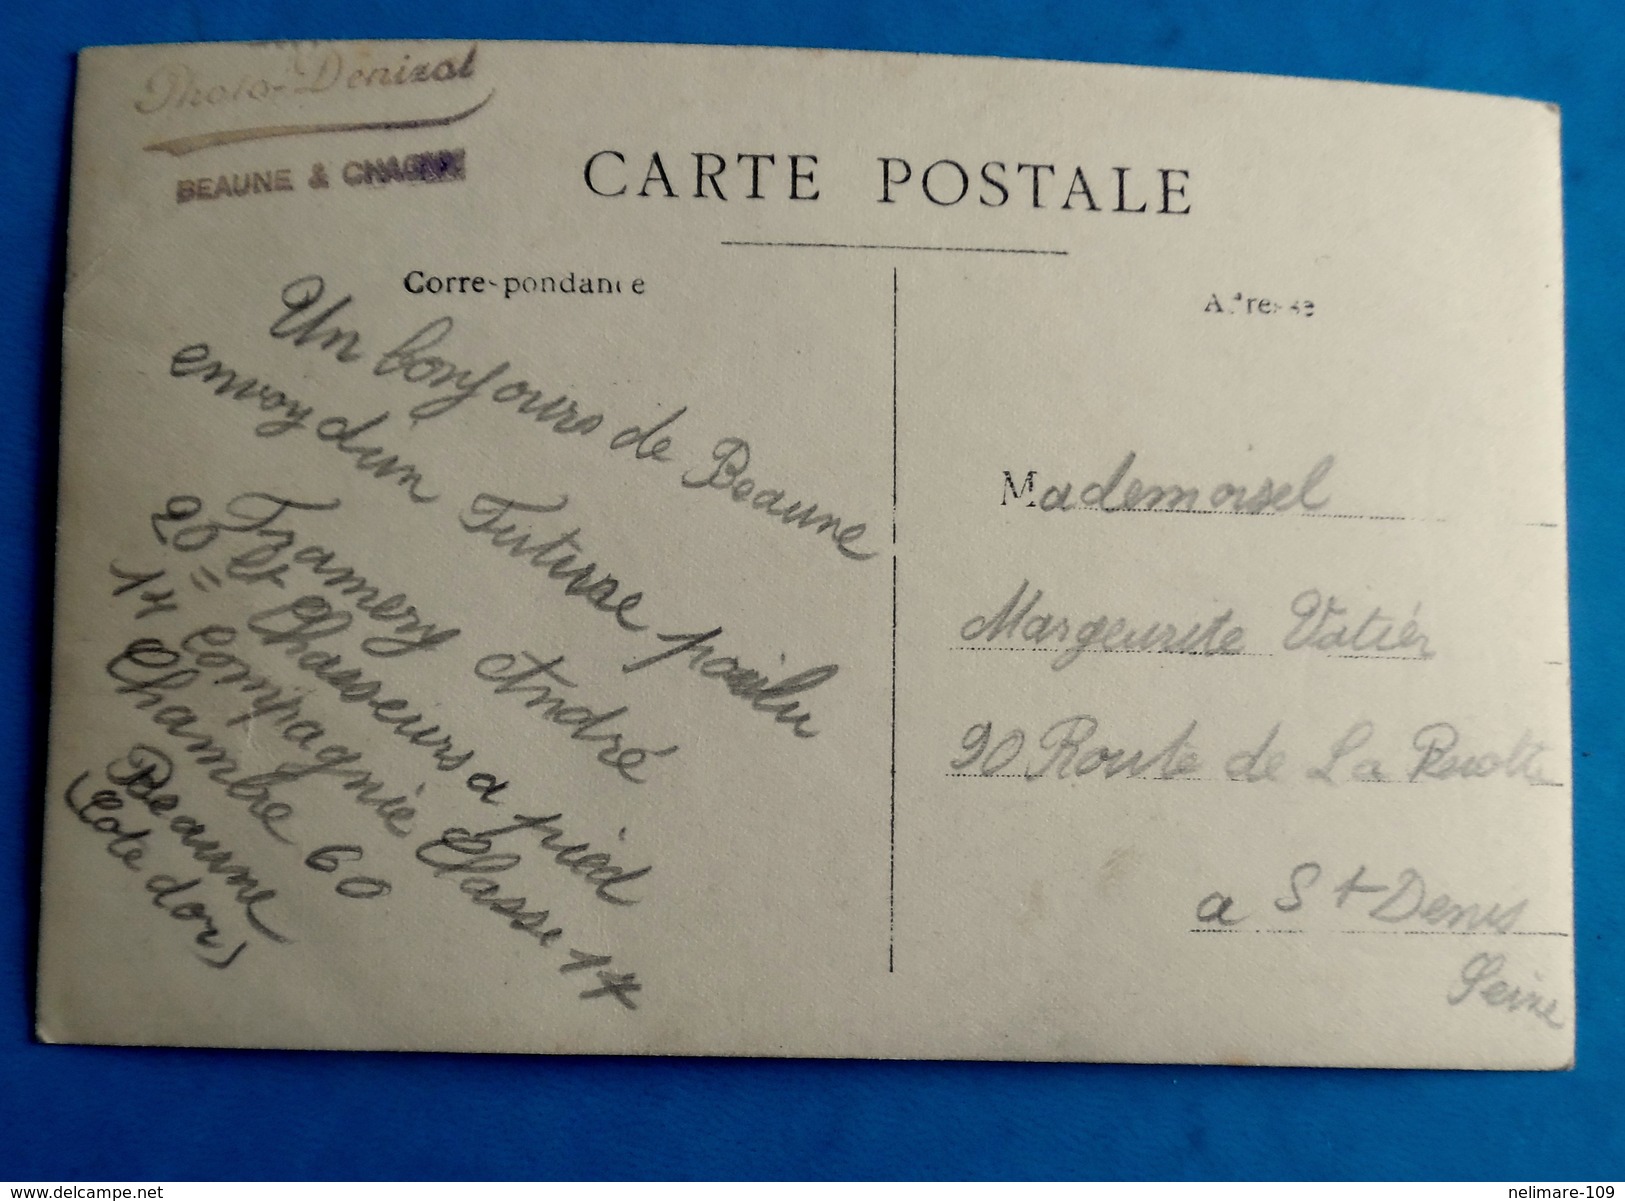 Photo-Denizot
BEAUNE & CHAGNY
CARTE POSTALE
Correspondance
Adresse
Un bonjours de Beaune
envoy dun Futurae poilu
Tramery André
20= et Chasseurs a pied
14 Compagnie Classe 17
Chambre 60
Beaune
(Cote dor)
Mademoisel
Margeurite Vatiér
90 Route de La Ruolte
a St Denis
Seine
delcampe.net
nelimare-109